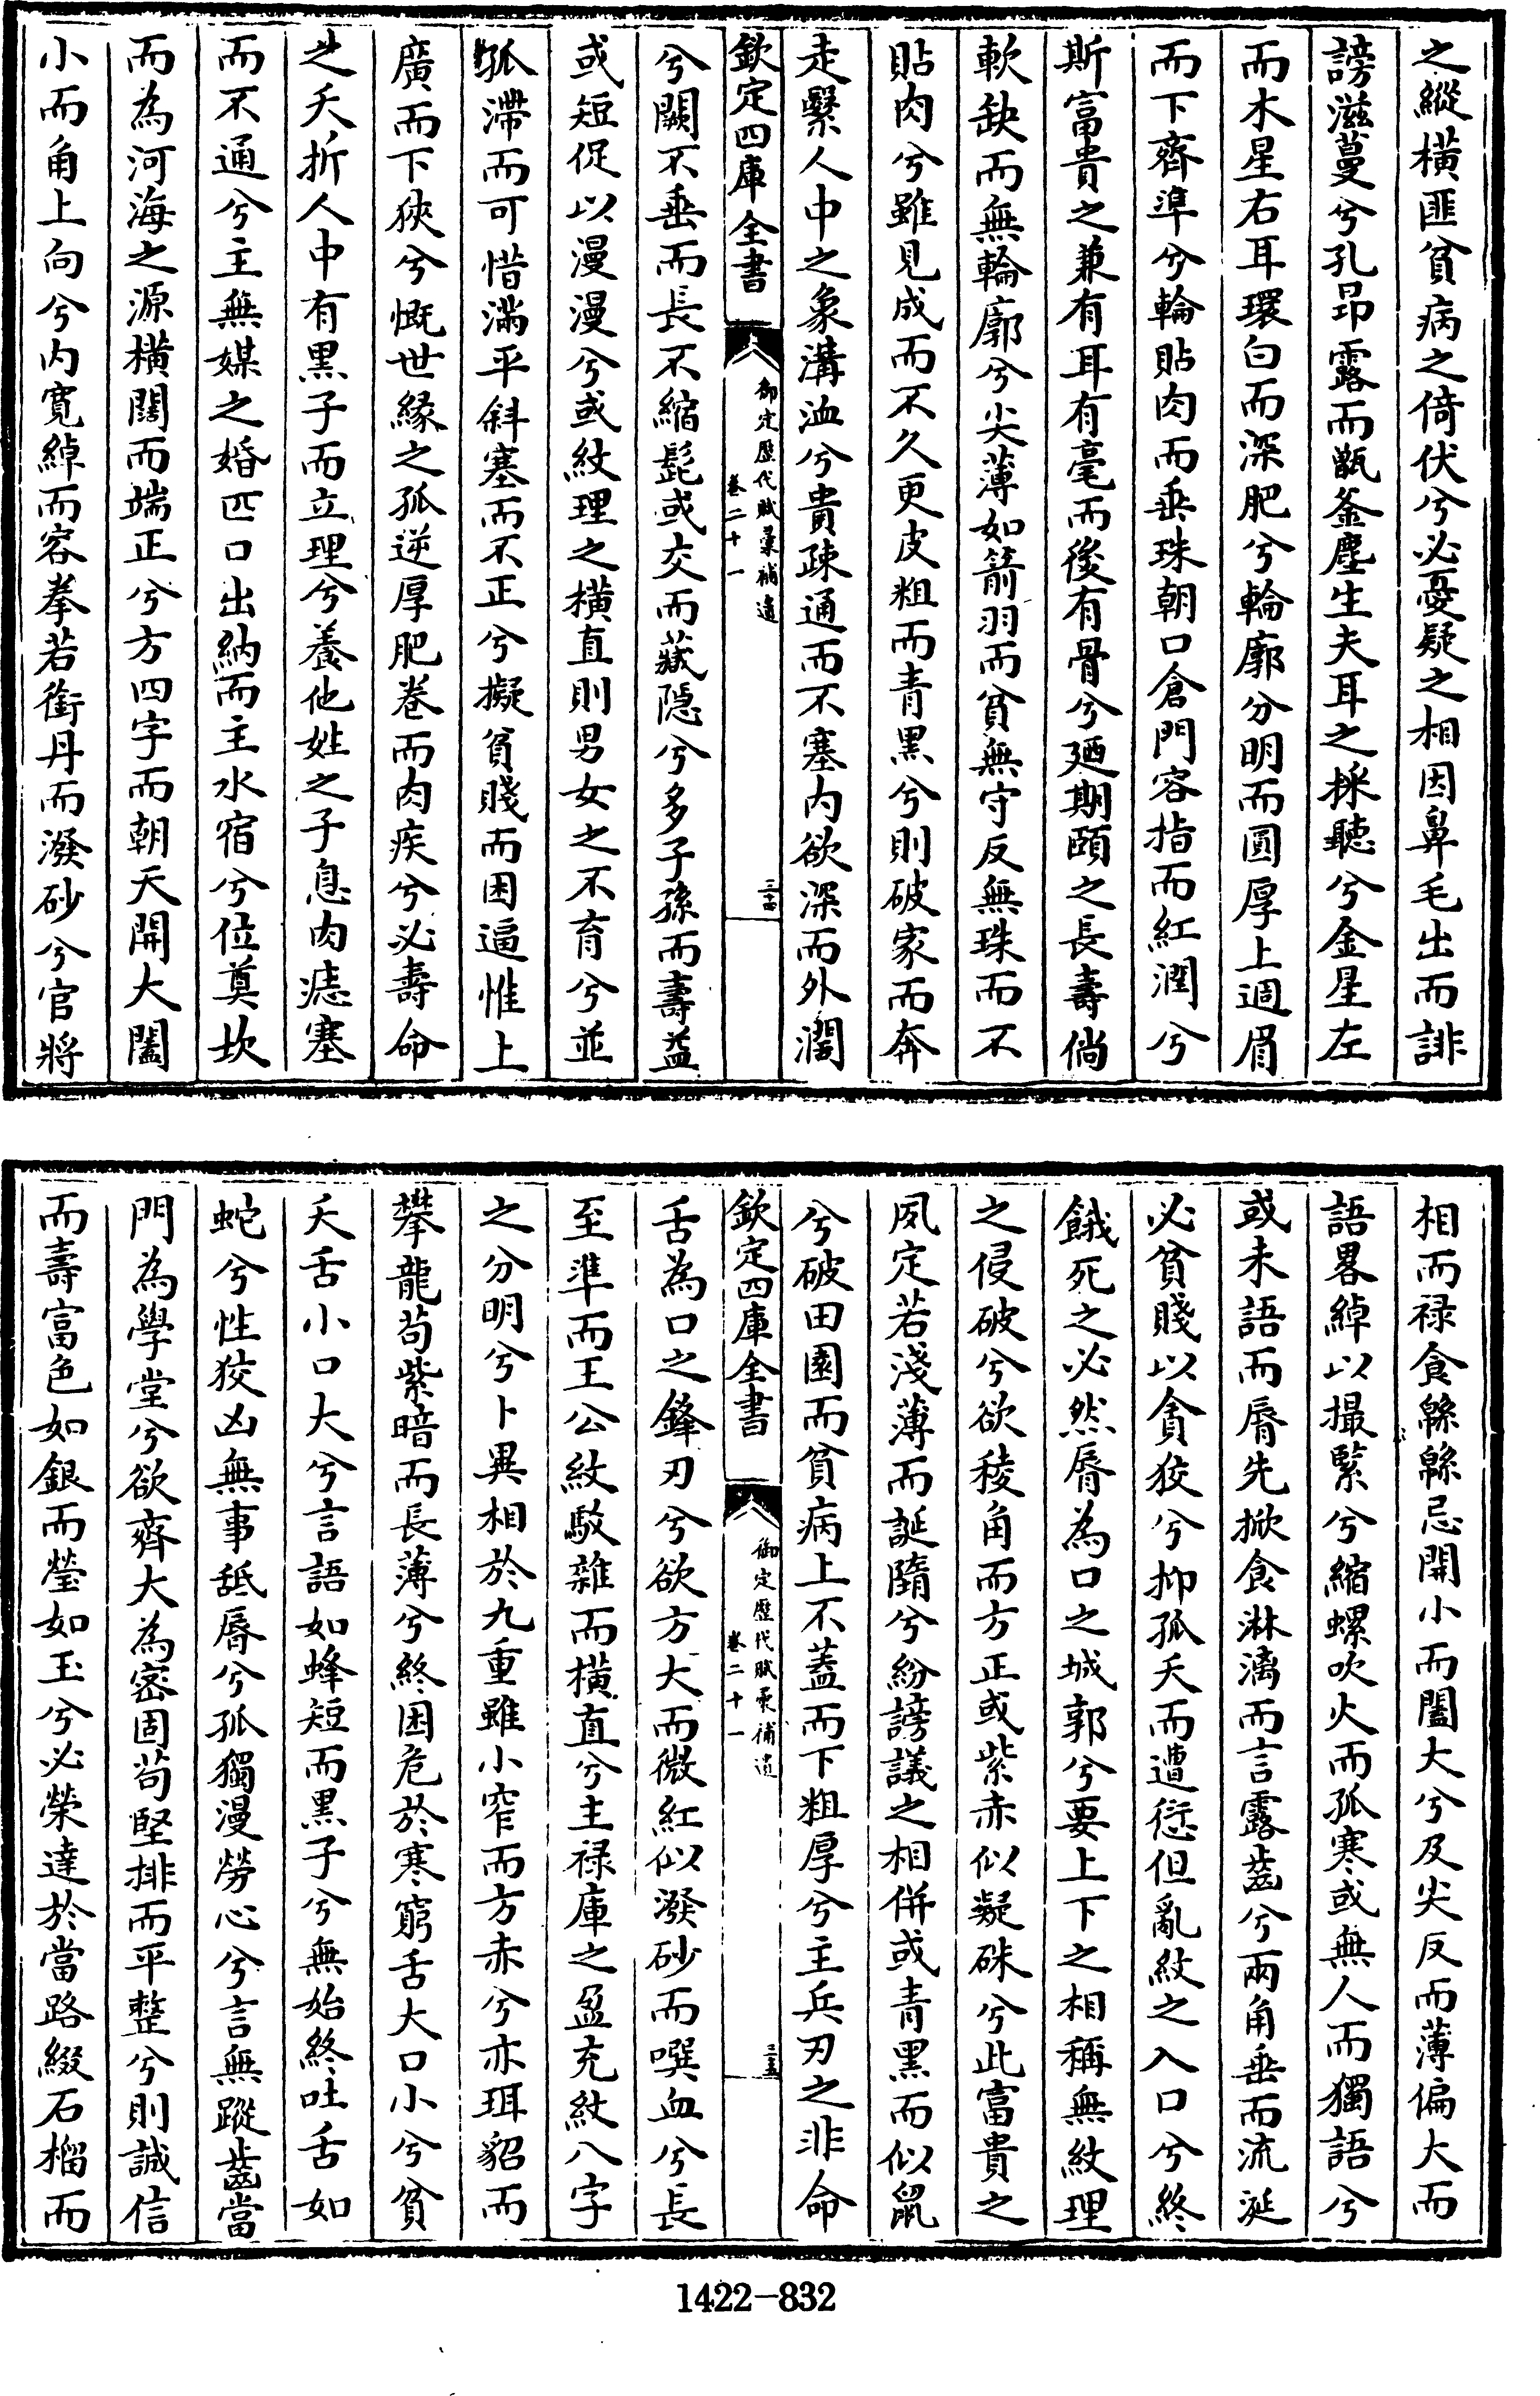 之縱橫匪貧病之倚伏兮必憂疑之相因鼻毛出而誹
謗滋蔓兮孔昻露而甑釜塵生夫耳之採聽兮金星左
而木星右耳環白而深肥兮輪廓分明而圓厚上週眉
而下齊準兮輪貼肉而垂珠朝口倉門容指而紅潤兮
斯富貴之兼有耳有毫而後有骨兮廼期頤之長壽倘
軟缺而無輪廓兮尖薄如箭羽而貧無守反無珠而不
貼肉兮雖見成而不久更皮粗而青黑兮則破家而奔
走繄人中之象溝洫兮貴疎通而不塞内欲深而外濶
欽定四庫全書
御定歷代賦彙補遺
卷二十一
三十四
兮闕不垂而長不縮髭或交而藏隠兮多子孫而壽益
或短促以漫漫兮或紋理之横直則男女之不育兮並
孤滯而可惜滿平斜塞而不正兮擬貧賤而困逼惟上
廣而下狹兮慨世緣之孤逆厚肥卷而肉疾兮必壽命
之夭折人中有黒子而立理兮養他姓之子息肉痣塞
而不通兮主無媒之婚匹口出納而主水宿兮位奠坎
而為河海之源横闊而端正兮方四字而朝天開大闔
小而角上向兮内寛綽而容拳若銜丹而潑砂兮官將
相而禄食緜緜忌開小而闔大兮及尖反而薄偏大而
語畧綽以撮緊兮縮螺吹火而孤寒或無人而獨語兮
或未語而脣先掀食淋漓而言露齒兮兩角垂而流涎
必貧賤以貪狡兮抑孤夭而遭愆但亂紋之入口兮終
餓死之必然脣為口之城郭兮要上下之相稱無紋理
之侵破兮欲稜角而方正或紫赤似凝硃兮此富貴之
夙定若淺薄而誕隋兮紛謗議之相併或青黑而似鼠
兮破田園而貧病上不蓋而下粗厚兮主兵刃之非命
欽定四庫全書
御定歷代賦彙補遺
卷二十一
三十五
舌為口之鋒刃兮欲方大而微紅似潑砂而噀血兮長
至準而王公紋駁雜而横直兮主禄庫之盈充紋八字
之分明兮卜異相於九重雖小窄而方赤兮亦珥貂而
攀龍苟紫暗而長薄兮終困危於寒窮舌大口小兮貧
夭舌小口大兮言語如蜂短而黒子兮無始終吐舌如
蛇兮性狡凶無事舐脣兮孤獨漫勞心兮言無蹤齒當
門為學堂兮欲齊大為密固苟堅排而平整兮則誠信
而壽富色如銀而瑩如玉兮必榮達於當路綴石榴而
1422-832